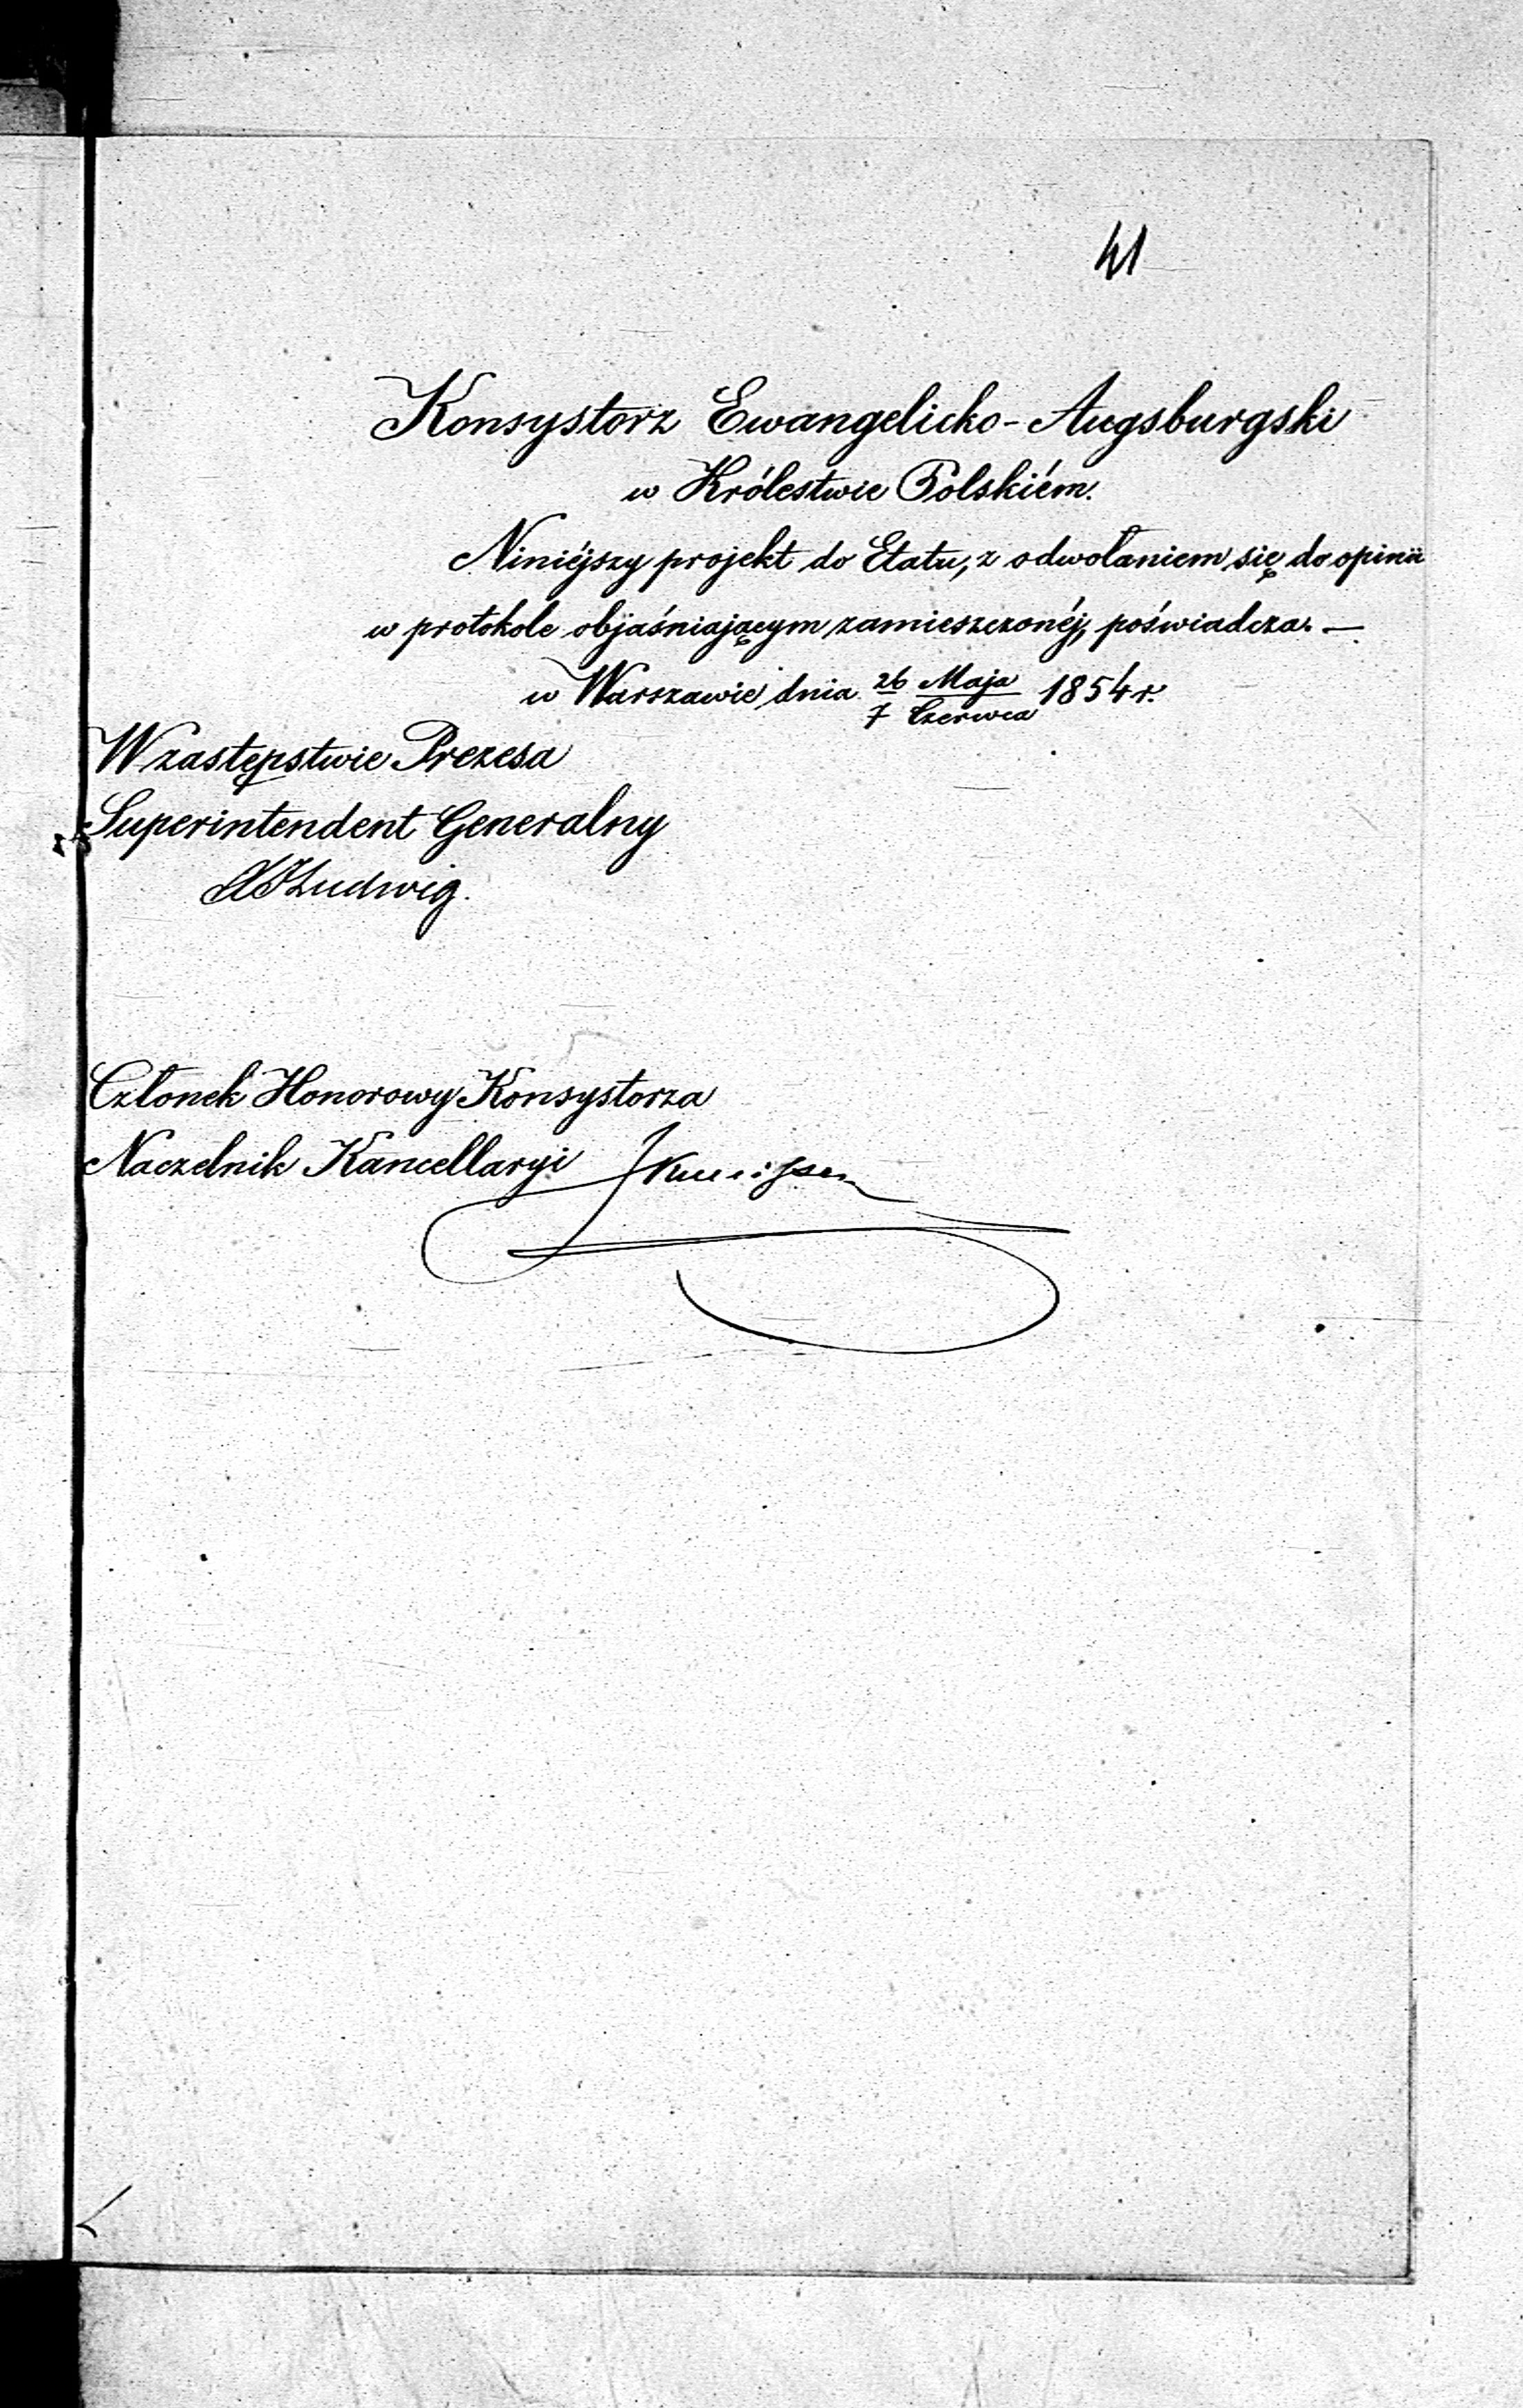 41
Konsystorz Ewangelicko-Augsburgski
w Królestwie Polskiém.
Niniéjszy projekt do Etatu, z odwołaniem się do opinii
w protokole objaśniającym zamieszczonéj, poświadcza. —
w Warszawie dnia 26 Maja / 7 Czerwca 1854 r.
W zastępstwie Prezesa
Superintendent Generalny
Ludwig.
Członek Honorowy Konsystorza
Naczelnik Kancellaryi